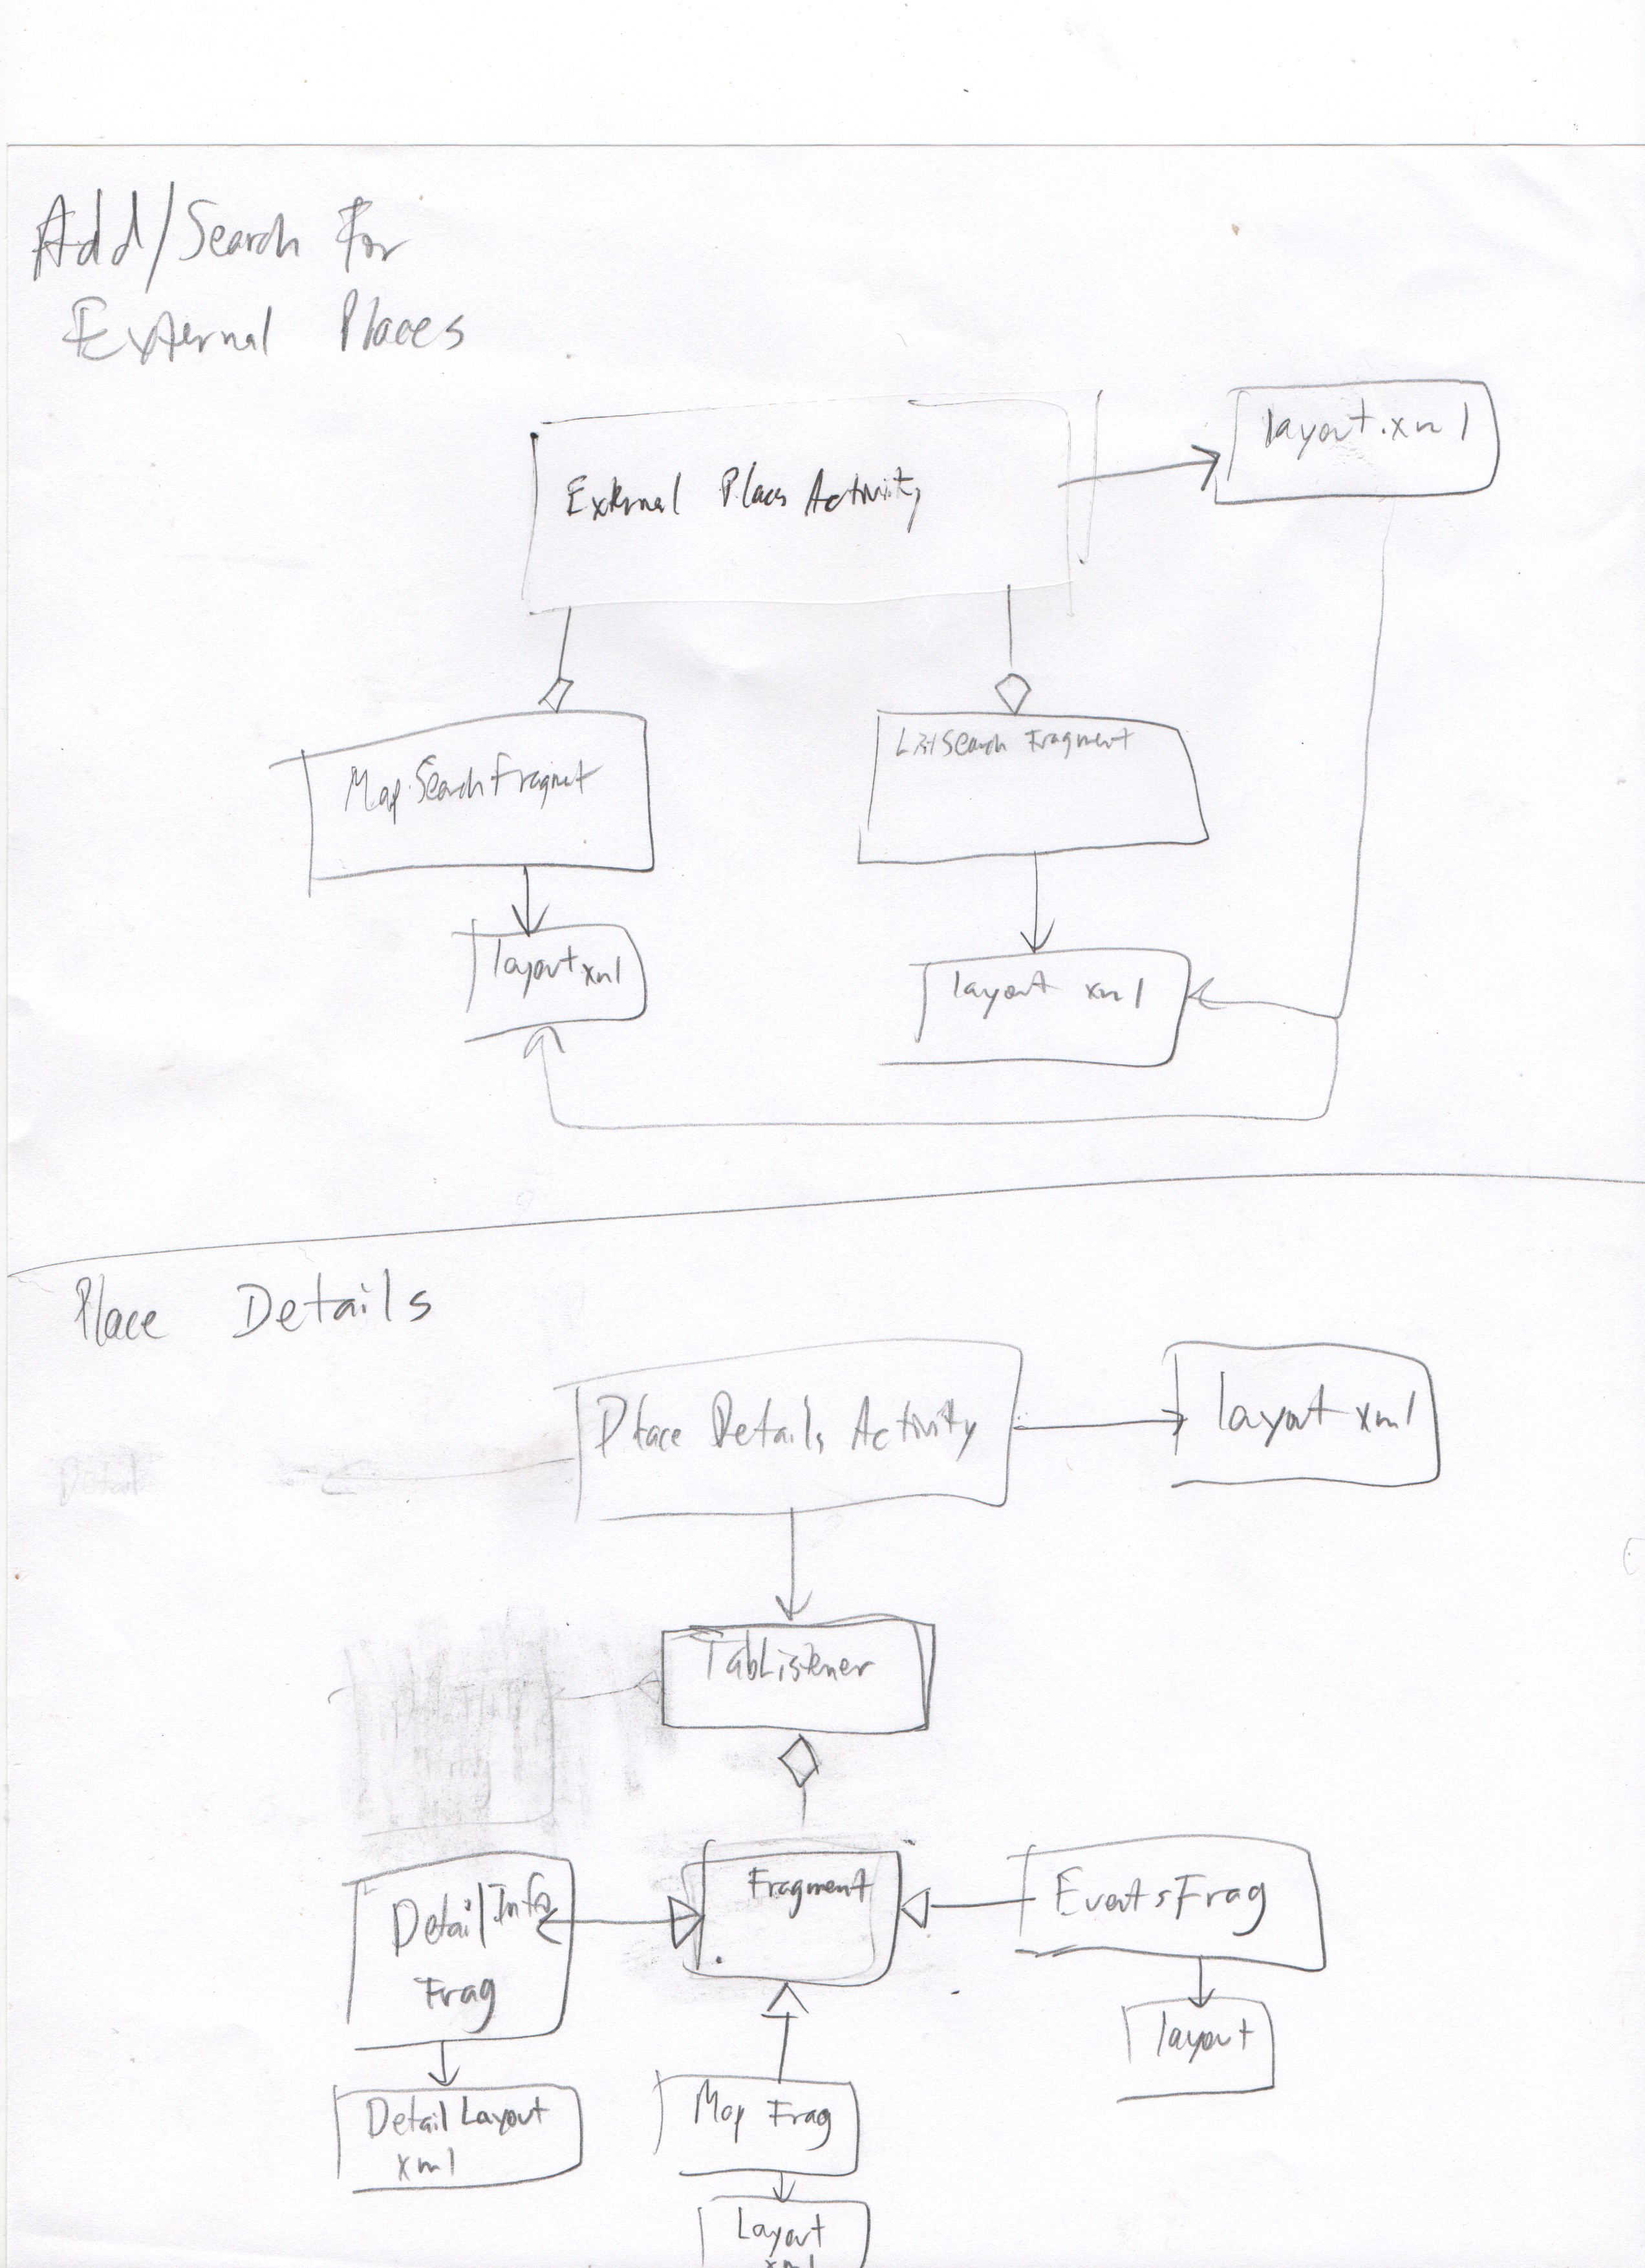 Add/Search For
External Places
layout.xml
External Places Activity
MapSearchFragmet
ListSearch Fragment
layout xml
layout xml
Place Details
Place Details Activity
layout xml
Detail
TabListener
Fragment
EventsFrag
Detail Info
Frag
layout
Detail Layout
xml
Map Frag
Layout
xml